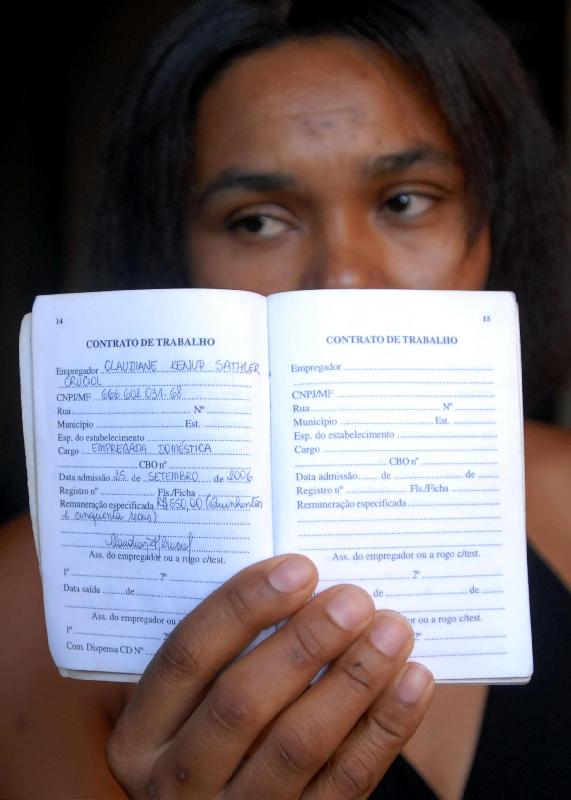 14
CONTRATO DE TRABALHO
Empregador CLAUDIANE KENUP SATHLER
CRUCIOL
CNPJ/MF 666.601.031-68
Rua Nº
Município Est.
Esp. do estabelecimento
Cargo EMPREGADA DOMÉSTICA
CBO nº
Data admissão 25 de SETEMBRO de 2006
Registro nº Fls./Ficha
Remuneração especificada R$ 550,00 (Quinhentos
e cinquenta reais)
Ass. do empregador ou a rogo c/test.
1º 2º
Data saída de
Ass. do empregador ou a
1º 2º
Com. Dispensa CD Nº
15
CONTRATO DE TRABALHO
Empregador
CNPJ/MF
Rua Nº
Município Est.
Esp. do estabelecimento
Cargo
CBO nº
Data admissão de de
Registro nº Fls./Ficha
Remuneração especificada
Ass. do empregador ou a rogo c/test.
2º
de de
ou a rogo c/test.
2º